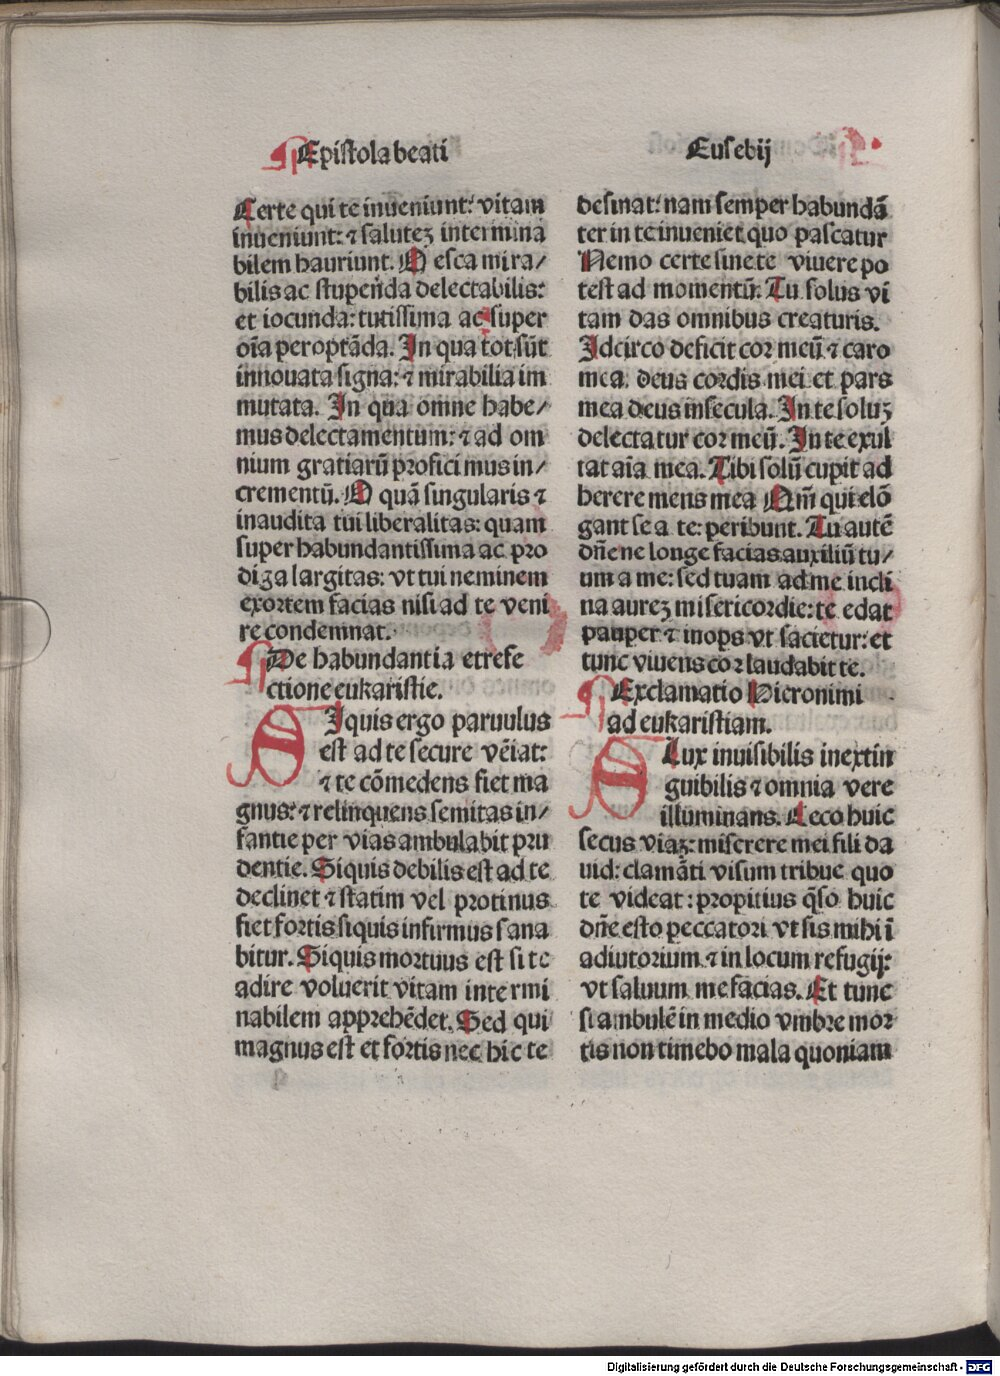 Epistola beati
Eusebij
Certe qui te inueniunt: vitam
inueniunt: ⁊ salutez intermina
bilem hauriunt. O esca mira/
bilis ac stupenda delectabilis:
et iocunda: tutissima ac super
oīa peroptāda. In qua tot sūt
innouata signa: ⁊ mirabilia im
mutata. In qua omne habe/
mus delectamentum: ⁊ ad om
nium gratiarū profici mus in/
crementū. O quā singularis ⁊
inaudita tui liberalitas: quam
super habundantissima ac pro
diga largitas: vt tui neminem
exortem facias nisi ad te veni
re condemnat.
De habundantia et refe
ctione eukaristie.
SIquis ergo paruulus
est ad te secure vēiat:
⁊ te cōmedens fiet ma
gnus: ⁊ relinquens semitas in/
fantie per vias ambulabit pru
dentie. Siquis debilis est ad te
declinet ⁊ statim vel protinus
fiet fortis siquis infirmus sana
bitur. Siquis mortuus est si te
adire voluerit vitam intermi
nabilem apprehēdet. Sed qui
magnus est et fortis nec hic te
desinat: nam semper habundā
ter in te inueniet quo pascatur
Nemo certe sine te viuere po
test ad momentū. Tu solus vi
tam das omnibus creaturis.
Idcirco deficit cor meū ⁊ caro
mea: deus cordis mei et pars
mea deus in secula. In te soluz
delectatur cor meū. In te exul
tat aīa mea. Tibi solū cupit ad
herere mens mea Nam̄ qui elō
gant se a te: peribunt. Tu autē
dn̄e ne longe facias auxiliū tu/
um a me: sed tuam ad me incli
na aurez misericordie: te edat
pauper ⁊ inops vt sacietur: et
tunc viuens cor laudabit te.
Exclamatio Hieronimi
ad eukaristiam.
O Lux inuisibilis inextin
guibilis ⁊ omnia vere
illuminans. Ceco huic
secus viaz: miserere mei fili da
uid: clamāti visum tribue quo
te videat: propitius q̄so huic
dn̄e esto peccatori vt sis mihi ī
adiutorium ⁊ in locum refugij:
vt saluum me facias. Et tunc
si ambulē in medio vmbre mor
tis non timebo mala quoniam
Digitalisierung gefördert durch die Deutsche Forschungsgemeinschaft - DFG